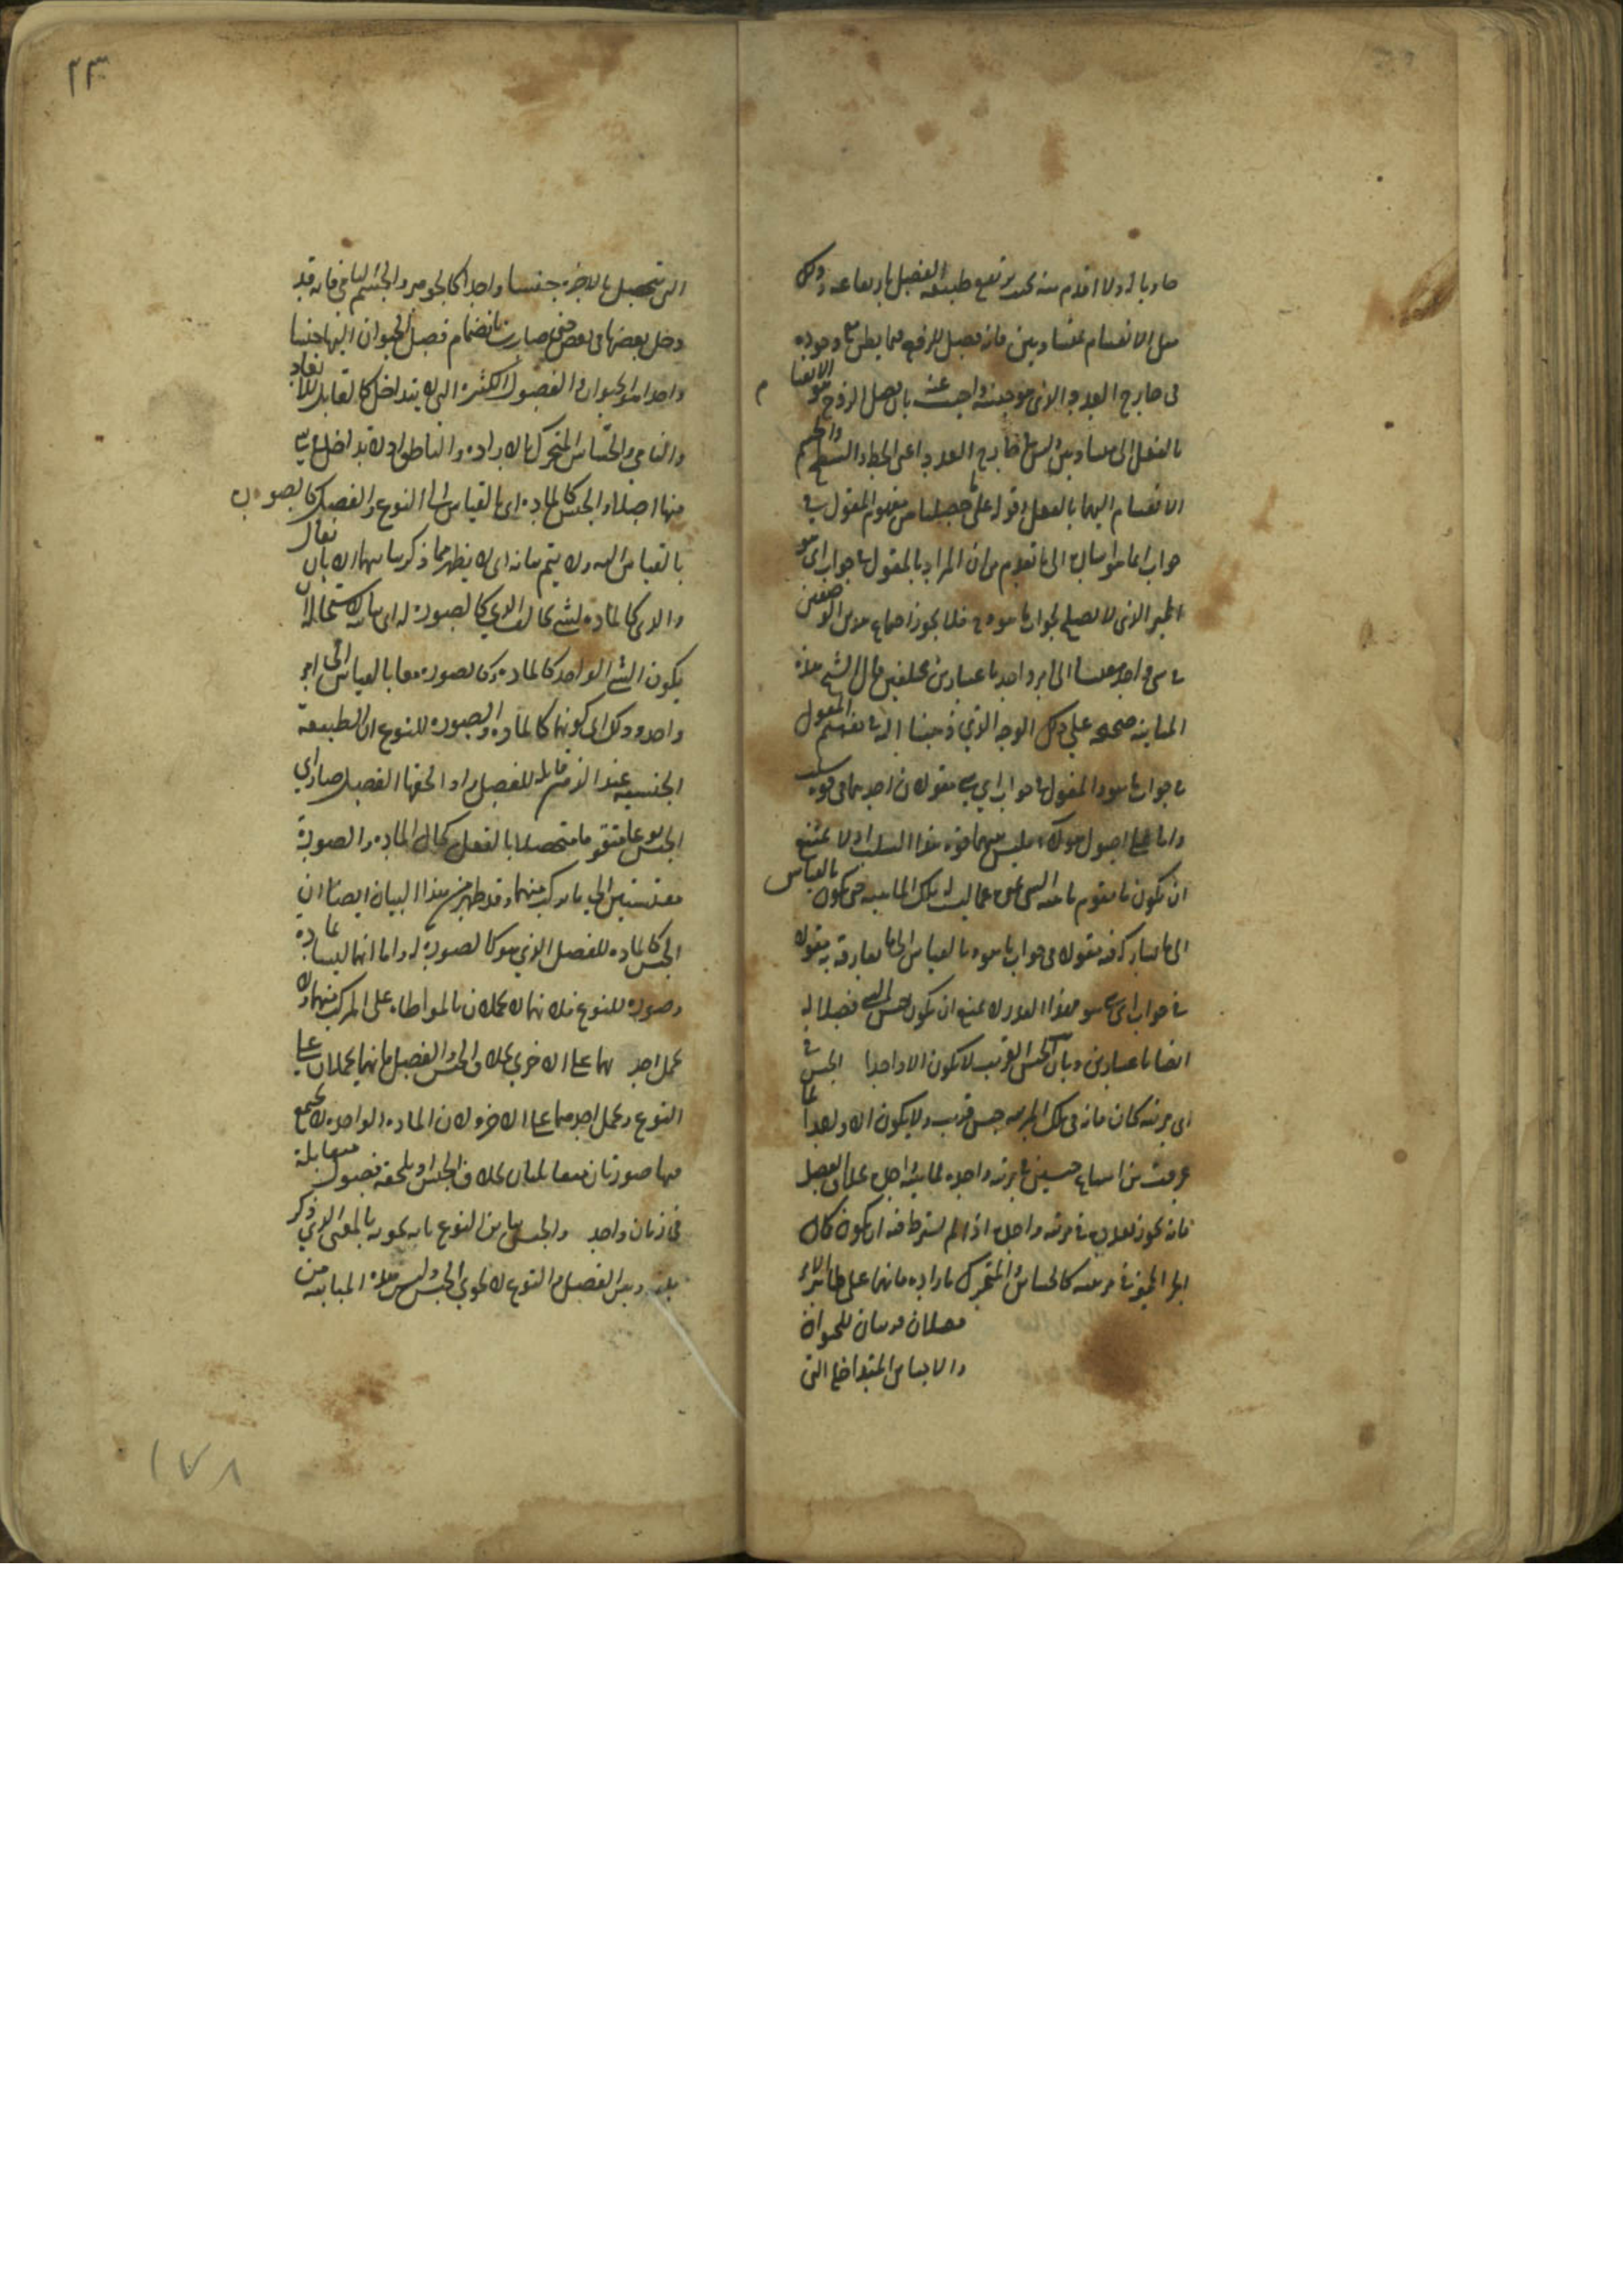 مساويا له ولا اقدم منه بحيث يرتفع طبيعة الفصل بارتفاعه وذلك
مثل الانقسام بمتساويين فانه فصل للزوج مما يظن وجوده
فى خارج العدد الذى هو جنسه واجيب عنه بان فصل الزوج هو الانقسام
بالفعل الى متساويين وليس خارج العدد اعنى الخط والسطح والجسم
الانقسام اليهما بالفعل وقوله على ما حصلنا من مفهوم المقول فى
جواب ايما هو اشارة الى ما تقدم من ان المراد بالمقول فى جواب اى هو
المميز الذى لا يصلح لجواب ما هو فلا يجوز اجتماع هذين الوصفين
فى شى واحد مقيسا الى امر واحد باعتبارين مختلفين قال الشيخ هذه
المباينة صحيحة على ذلك الوجه الذى ذهبنا اليه فى تفهيم المقول
فى جواب ما هو والمقول فى جواب اى شى مقول فان احدهما فى قوة سلب
واما على اصول هولاء فليس بينهما قوة هذا السلب اذ لا يمتنع
ان يكون ما تقوم ماهية الشى عما ليست له تلك الماهية حتى يكون بالقياس
الى ما يشاركه فيه مقولا فى جواب ما هو وبالقياس الى ما يفارقه به مقولا
فى جواب اى شى هو فهذا القدر لا يمنع ان يكون جنس الشى فصلا له
ايضا باعتبارين وبان الجنس القريب لا يكون الا واحدا الجنس فى
اى مرتبة كان فانه فى تلك المرتبة جنس قريب ولا يكون الا واحدا لما
عرفت من امتناع جنسين فى مرتبة واحدة لماهية واحدة بخلاف الفصل
فانه يجوز تعدده فى مرتبة واحدة اذا لم يشترط فيه ان يكون كمال
الجزء المميز فى مرتبته كالحساس والمتحرك بالارادة فانهما على ظاهر الامر
فصلان قريبان للحيوان
والاجناس المتداخلة التى
٢٣
التى يتحصل بالاخرة جنسا واحدا كالجوهر والجسم النامى فانه قد
دخل بعضها فى بعض حتى صارت بانضمام فصل الحيوان اليها جنسا
واحدا هو الحيوان والفصول الكثيرة التى لا يتداخل كالقابل للابعاد
والنامى والحساس المتحرك بالارادة والناطق اذ لا يتداخل شى
منها اصلا والجنس كالمادة اى بالقياس الى النوع والفصل كالصورة
بالقياس اليه ولا يتم بيانه اى لا يظهر مما ذكر بيانهما الا بان يقال
والذى كالمادة لشى يخالف الذى كالصورة له اى لاستحالة ان
يكون الشى الواحد كالمادة وكالصورة معا بالقياس الى امر
واحد وذلك اى كونهما كالمادة والصورة للنوع ان الطبيعة
الجنسية عند الذهن قابلة للفصل واذا لحقها الفصل صار اى
الجنس نوعا متقوما متحصلا بالفعل كحال المادة والصورة
مقيستين الى ما يركب منهما وقد ظهر من هذا البيان ايضا ان
الجنس كالمادة للفصل الذى هو كالصورة له واما انهما ليسا مادة
وصورة للنوع فلانهما لا يحملان بالمواطاة على المركب منهما ولا
يحمل احدهما على الاخرى بخلاف الجنس والفصل فانهما يحملان على
النوع ويحمل احدهما على الاخر ولان المادة الواحدة لا يجتمع
فيها صورتان متقابلتان بخلاف الجنس اذ يلحقه فصول متقابلة
فى زمان واحد والجنس يباين النوع بانه يحويه بالمعنى الذى ذكر
قبله وبين الفصل والنوع لا يحوى الجنس وليس هذه المباينة من
١٧٨